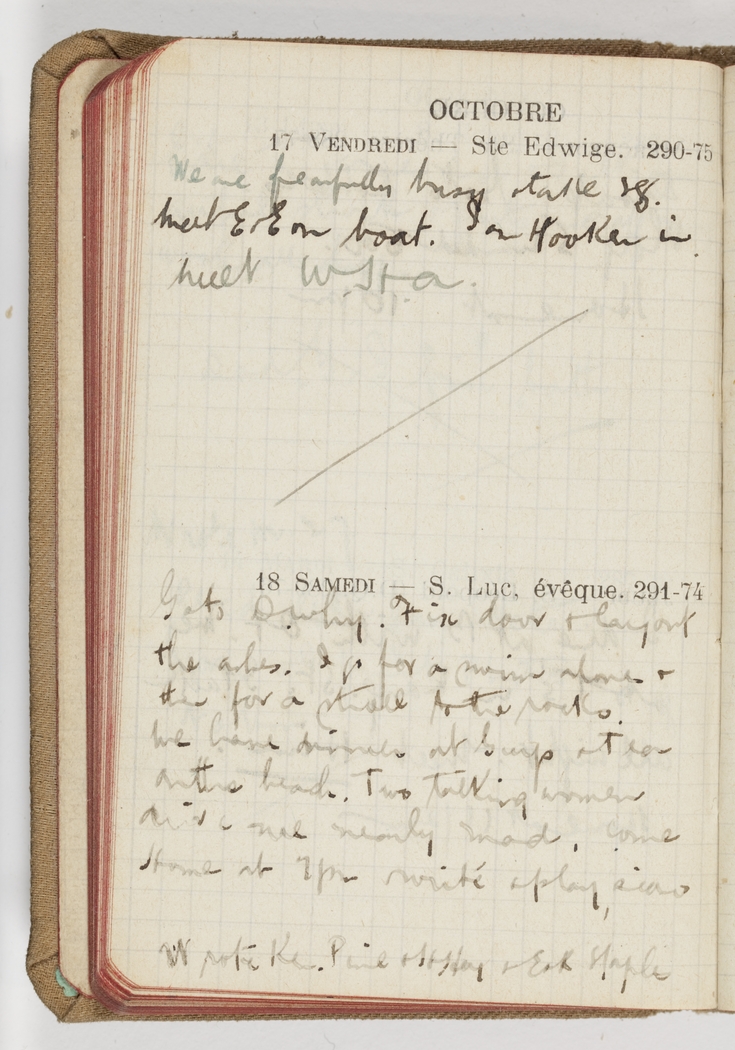 OCTOBRE
17 VENDREDI — Ste Edwige. 290-75
We are fearfully busy & take 58.
meet E.E on boat. Ian Hooker in
meet W.H.a.
18 SAMEDI — S. Luc, évêque. 291-74
Gets. Fix door & lay out
the ashes. I go for a swim alone &
then for a stroll to the rocks.
We have dinner at & tea
on the beach. Two talking women
drive me nearly mad, come
Home at 7pm write & play
Wrote Ke. & &